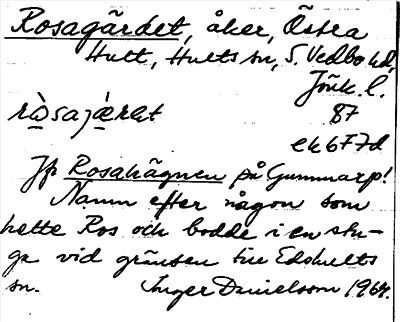 Rosagärdet, åker, Östra
Hult, Hults sn, S. Vedbo hd,
Jönk. l.
87
ek 6F7d
Jfr Rosahägnen på Gummarp!
Namn efter någon som
hette Ros och bodde i en stu-
ga vid gränsen till Edshults
sn. Inger Danielsson 1964.